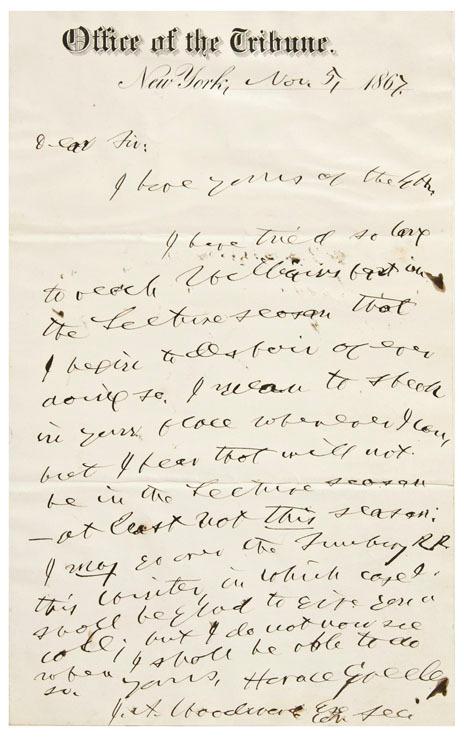 Office of the Tribune.
New York, Nov. 5, 1867.
Dear Sir:
I have yours of the 4th.
I have tried so long
to reach Williamsport in
the Lecture season that
I begin to despair of ever
doing so. I mean to speak
in your place whenever I can,
but I fear that will not
be in the Lecture season
— at least not this season.
I may go over the Sunbury R.R.
this winter, in which case I
shall be glad to give you a
call; but I do not now see
when I shall be able to do
so. Yours, Horace Greeley
J. A. Woodward Esq